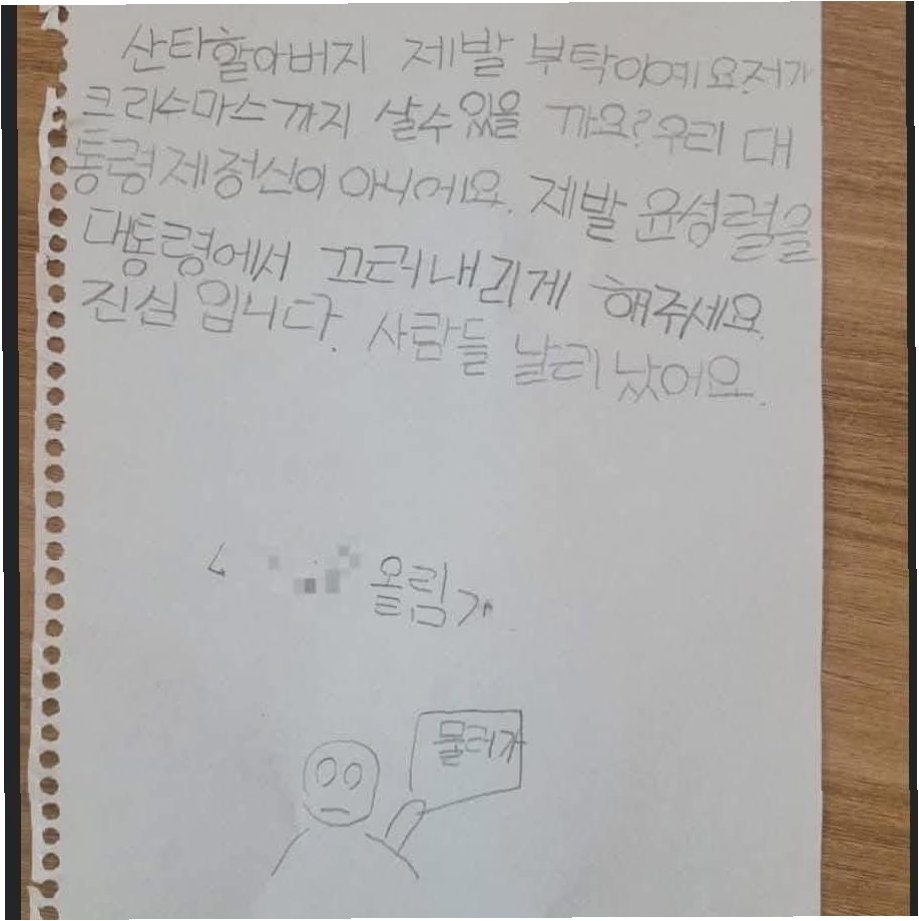 산타할아버지 제발 부탁이예요.저가
크리스마스까지 살수있을 까요?우리 대
통령제정신이 아니에요. 제발 윤성렬을
대통령에서 끄러내리게 해주세요
진심 입니다. 사람들 날리 났어요.
올림
물러가